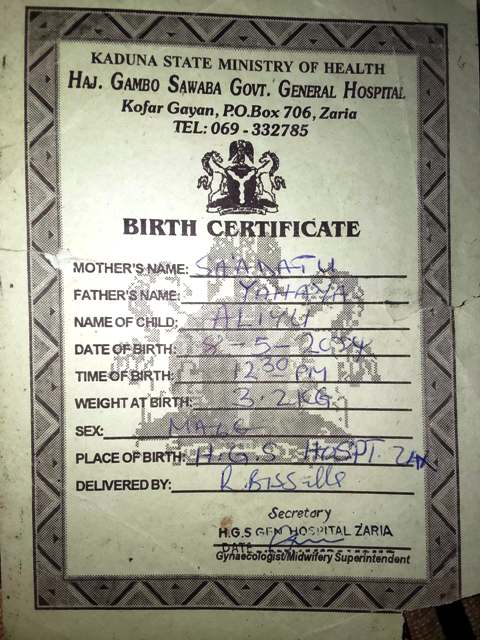 KADUNA STATE MINISTRY OF HEALTH
HAJ. GAMBO SAWABA GOVT. GENERAL HOSPITAL
Kofar Gayan, P.O.Box 706, Zaria
TEL: 069 - 332785
BIRTH CERTIFICATE
MOTHER'S NAME: SA'ADATU
FATHER'S NAME: YAHAYA
NAME OF CHILD: ALIYU
DATE OF BIRTH: -5-2004
TIME OF BIRTH: 12 30 PM
WEIGHT AT BIRTH: 3.2KG
SEX: MALE
PLACE OF BIRTH: H.G.S HOSPT.
DELIVERED BY:
Secretary
H.G.S GEN HOSPITAL ZARIA
DATE
Gynaecologist/Midwifery Superintendent